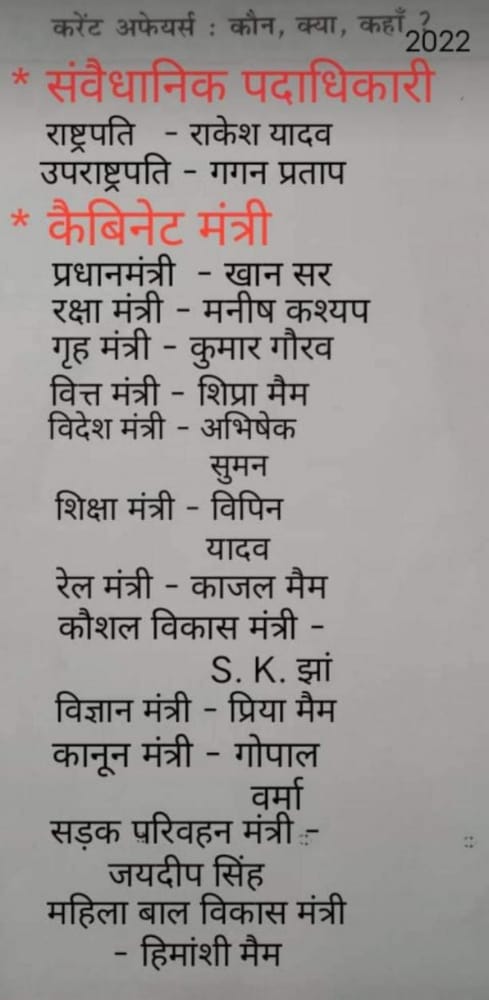 करेंट अफेयर्स : कौन, क्या, कहाँ ?
2022
* संवैधानिक पदाधिकारी
राष्ट्रपति - राकेश यादव
उपराष्ट्रपति - गगन प्रताप
* कैबिनेट मंत्री
प्रधानमंत्री - खान सर
रक्षा मंत्री - मनीष कश्यप
गृह मंत्री - कुमार गौरव
वित्त मंत्री - शिप्रा मैम
विदेश मंत्री - अभिषेक
सुमन
शिक्षा मंत्री - विपिन
यादव
रेल मंत्री - काजल मैम
कौशल विकास मंत्री -
S. K. झां
विज्ञान मंत्री - प्रिया मैम
कानून मंत्री - गोपाल
वर्मा
सड़क परिवहन मंत्री -
जयदीप सिंह
महिला बाल विकास मंत्री
- हिमांशी मैम